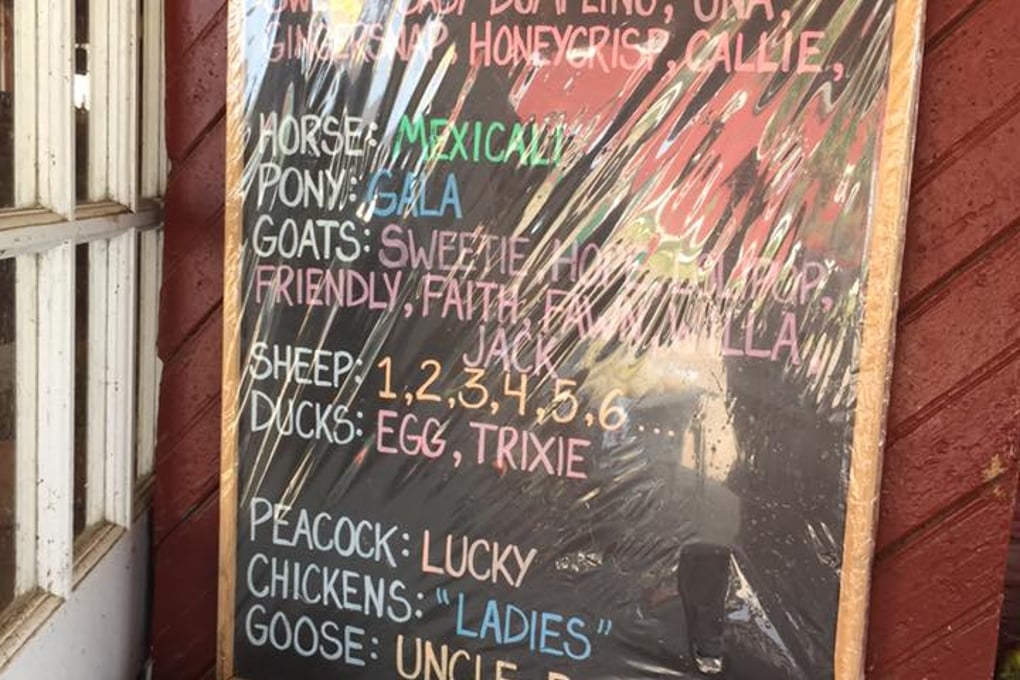 GINGERSNAP, HONEYCRISP, CALLIE,
HORSE: MEXICALI
PONY: GALA
GOATS: SWEETIE, HOPE, LOLLIPOP,
FRIENDLY, FAITH, FAWN, WILLA
JACK
SHEEP: 1,2,3,4,5,6...
DUCKS: EGG, TRIXIE
PEACOCK: LUCKY
CHICKENS: "LADIES"
GOOSE: UNCLE